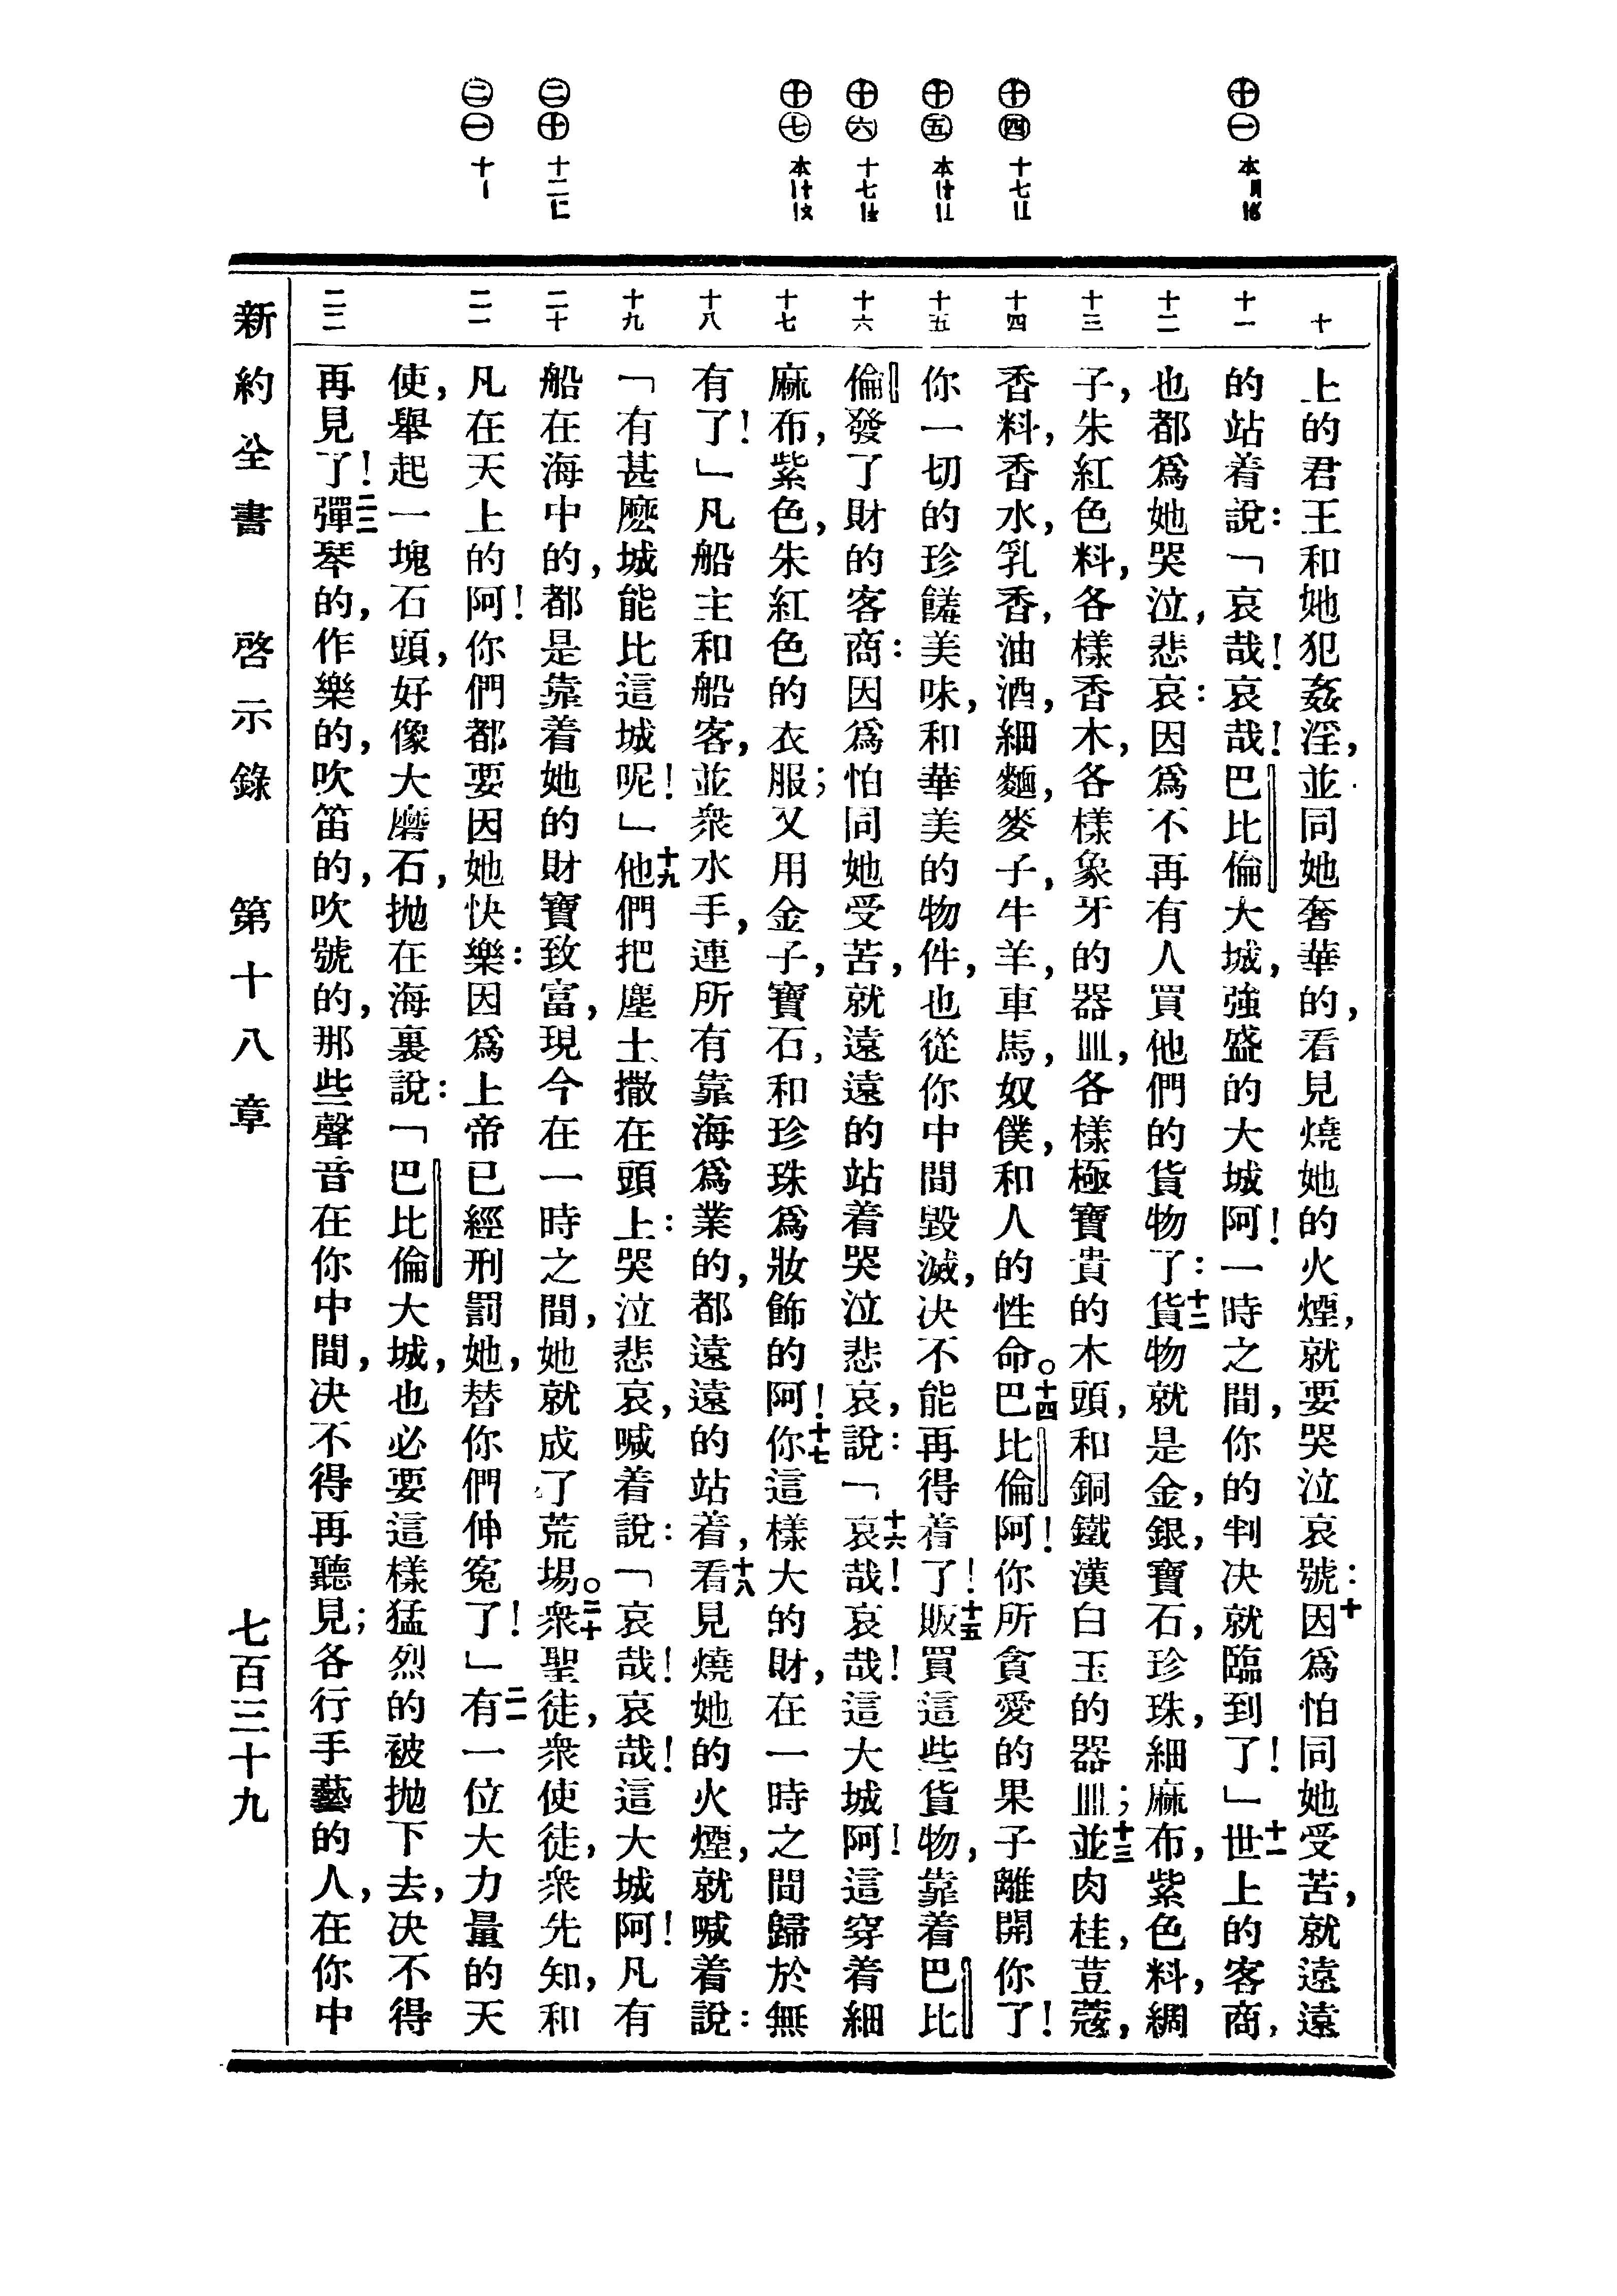 十 十一 十二 十三 十四 十五 十六 十七 十八 十九 二十 二一 二二
上的君王和她犯姦淫，並同她奢華的，看見燒她的火煙，就要哭泣哀號：十因爲怕同她受苦，就遠遠
的站着說：「哀哉！哀哉！巴比倫大城，強盛的大城阿！一時之間，你的判决就臨到了！」十一世上的客商，
也都爲她哭泣，悲哀：因爲不再有人買他們的貨物了：十二貨物就是金，銀，寶石，珍珠，細麻布，紫色料，綢
子，朱紅色料，各樣香木，各樣象牙的器皿，各樣極寶貴的木頭，和銅鐵漢白玉的器皿；十三並肉桂，荳蔻，
香料，香水，乳香，油酒，細麵，麥子，牛羊，車馬，奴僕，和人的性命。十四巴比倫阿！你所貪愛的果子離開你了！
你一切的珍饈美味，和華美的物件，也從你中間毀滅，决不能再得着了！十五販買這些貨物，靠着巴比
倫發了財的客商：因爲怕同她受苦，就遠遠的站着哭泣悲哀，說：「十六哀哉！哀哉！這大城阿！這穿着細
麻布，紫色，朱紅色的衣服；又用金子，寶石，和珍珠爲妝飾的阿！十七你這樣大的財，在一時之間歸於無
有了！」凡船主和船客，並衆水手，連所有靠海爲業的，都遠遠的站着，十八看見燒她的火煙，就喊着說：
「有甚麽城能比這城呢！」十九他們把塵土撒在頭上：哭泣悲哀，喊着說：「哀哉！哀哉！這大城阿！凡有
船在海中的，都是靠着她的財寶致富，現今在一時之間，她就成了荒場。二十衆聖徒，衆使徒，衆先知，和
凡在天上的阿！你們都要因她快樂：因爲上帝已經刑罰她，替你們伸寃了！」二一有一位大力量的天
使，舉起一塊石頭，好像大磨石，抛在海裏說：「巴比倫大城，也必要這樣猛烈的被抛下去，决不得
再見了！二二彈琴的，作樂的，吹笛的，吹號的，那些聲音在你中間，决不得再聽見；各行手藝的人，在你中
新約全書　啓示錄　第十八章　七百三十九